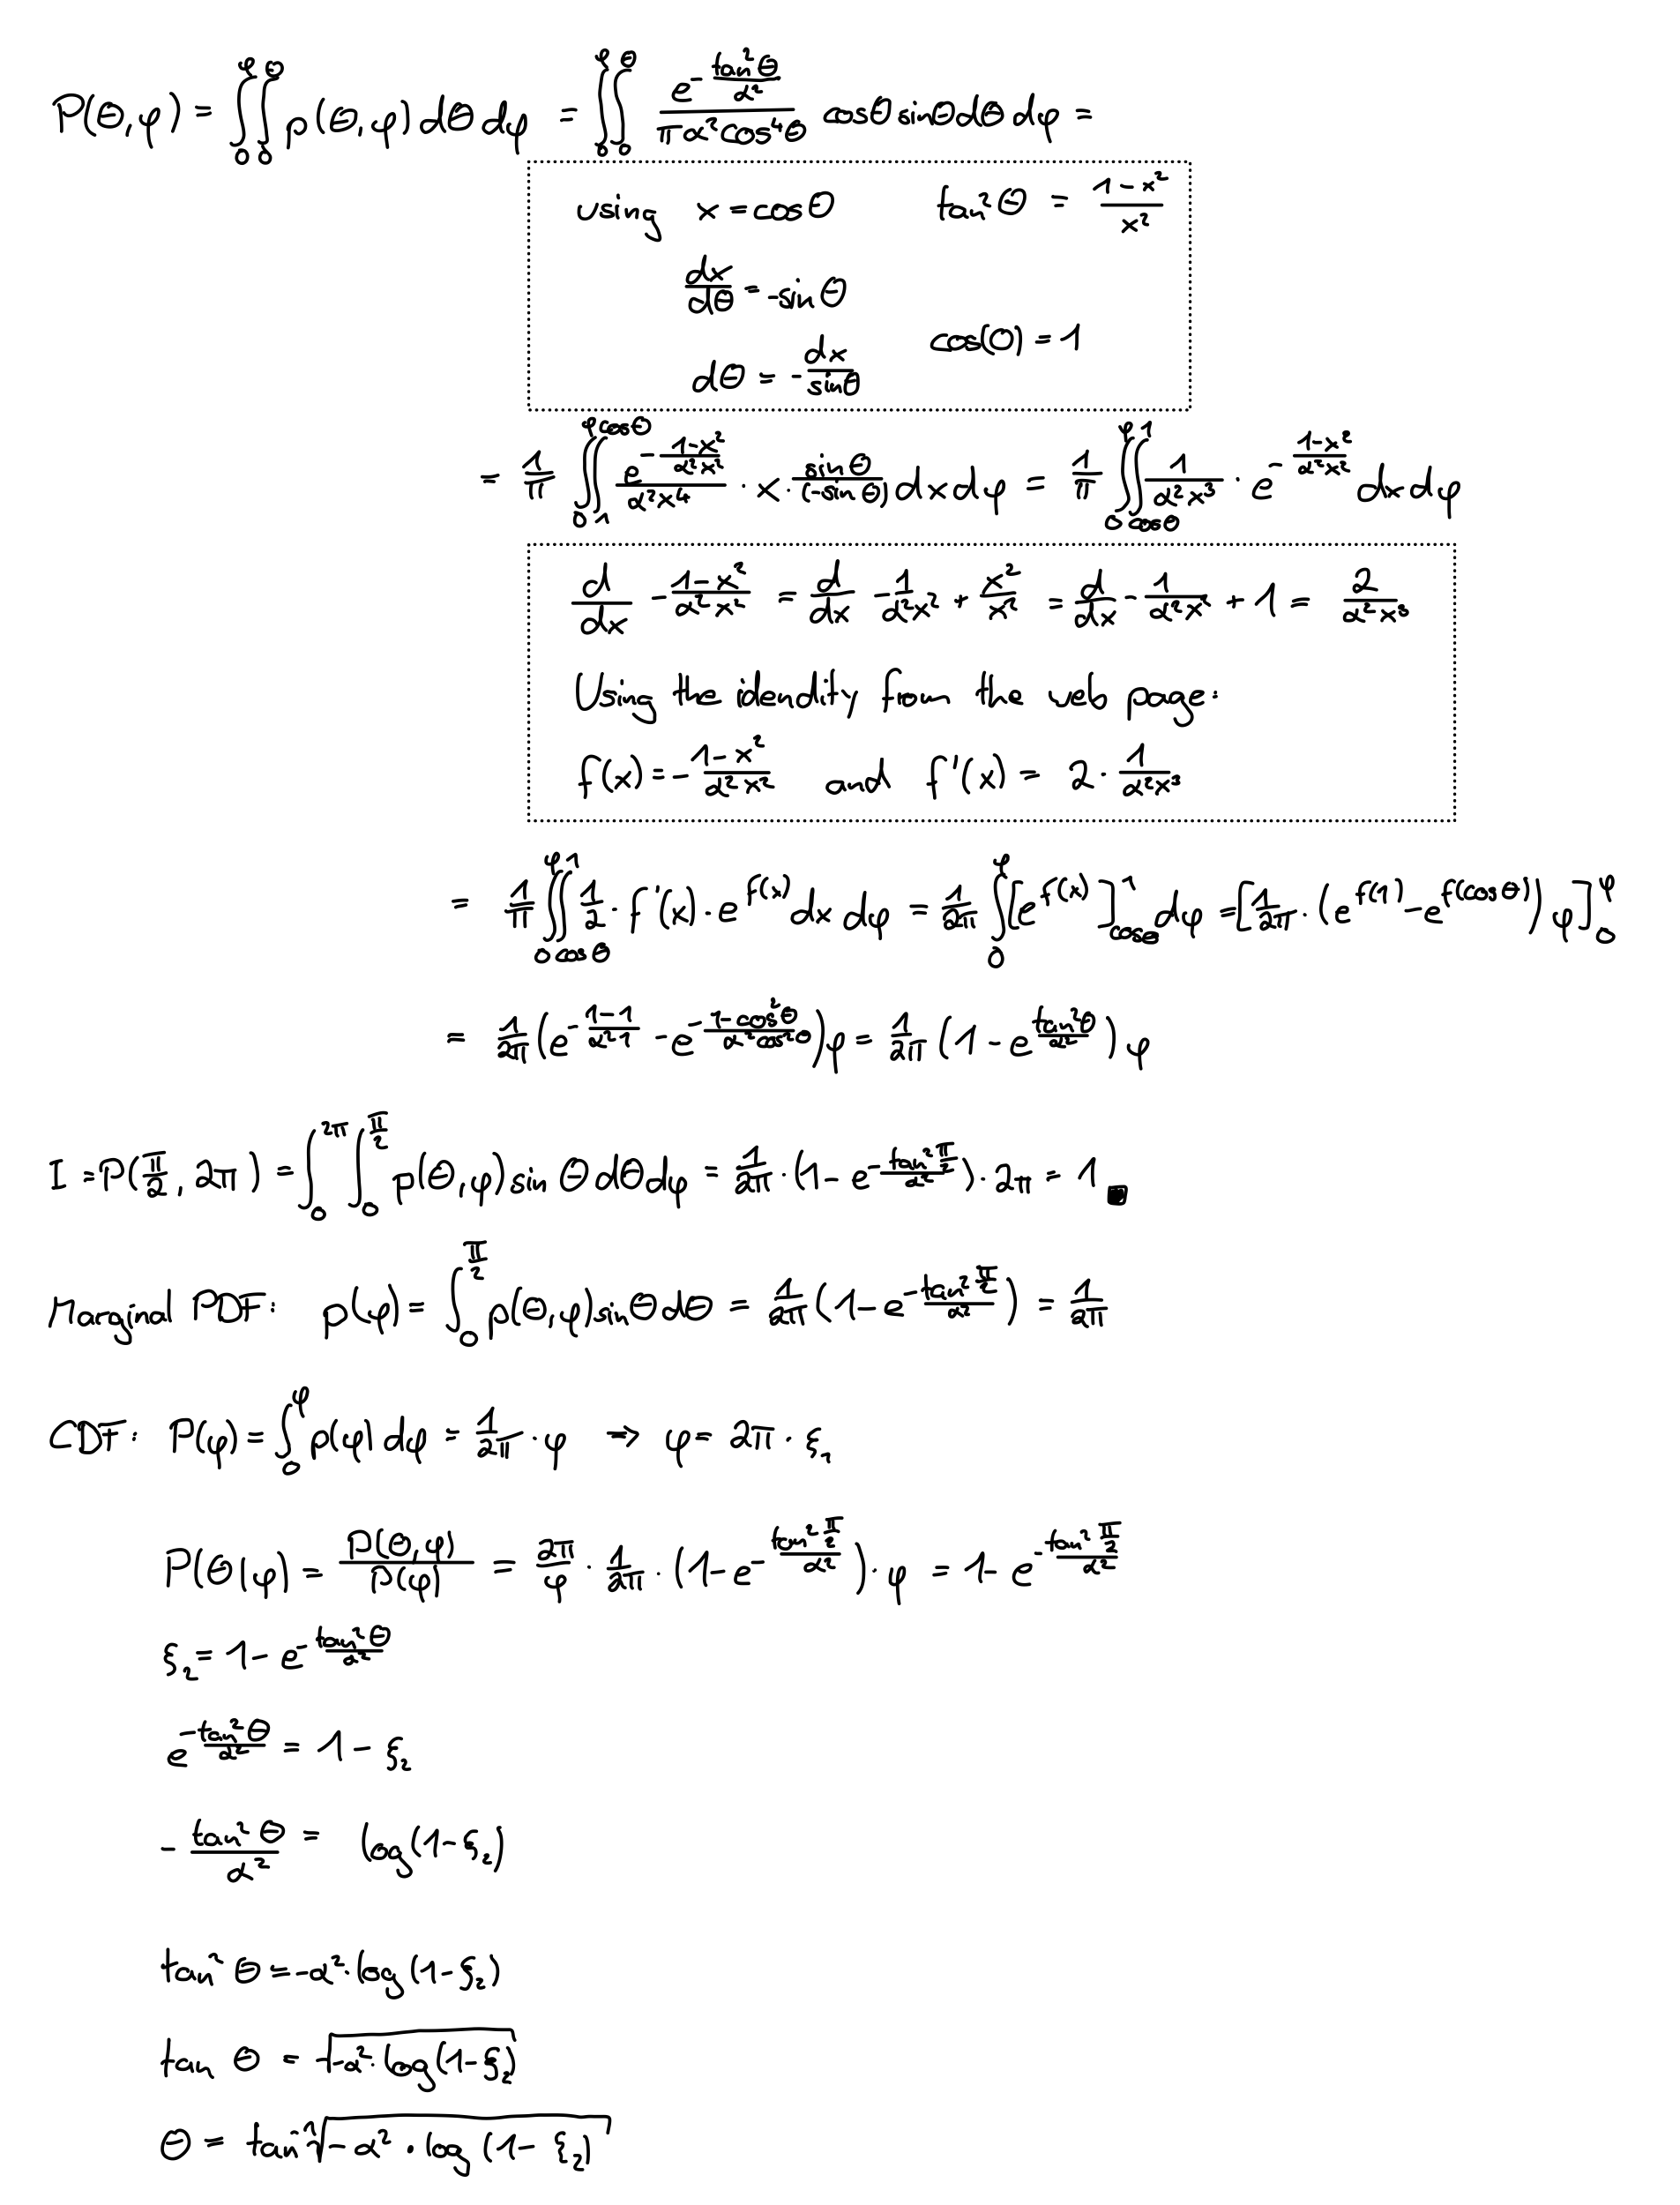 P(θ,φ) = ∫₀^φ ∫₀^θ p(θ,φ) dθ dφ = ∫₀^φ ∫₀^θ e^(-tan²θ/α²) / (πα²cos⁴θ) cosθ sinθ dθ dφ =
using x = cosθ tan²θ = (1-x²)/x²
dx/dθ = -sin θ
cos(0) = 1
dθ = - dx/sinθ
= 1/π ∫₀^φ ∫₁^cosθ e^(-(1-x²)/(α²x²)) / (α²x⁴) · x · sinθ/(-sinθ) dx dφ = 1/π ∫₀^φ ∫_cosθ^1 1/(α²x³) · e^(-(1-x²)/(α²x²)) dx dφ
d/dx -(1-x²)/(α²x²) = d/dx -1/(α²x²) + x²/x² = d/dx -1/(α²x²) + 1 = 2/(α²x³)
Using the idendity from the web page:
f(x) = -(1-x²)/(α²x²) and f'(x) = 2 · 1/(α²x³)
= 1/π ∫₀^φ ∫_cosθ^1 1/2 · f'(x) · e^f(x) dx dφ = 1/2π ∫₀^φ [e^f(x)]_cosθ^1 dφ = [1/2π · (e^f(1) - e^f(cosθ)) φ]₀^φ
= 1/2π (e^(-(1-1)/(α²1)) - e^(-(1-cos²θ)/(α²cos²θ))) φ = 1/2π (1 - e^(tan²θ/α²)) φ
I = P(π/2, 2π) = ∫₀^2π ∫₀^(π/2) p(θ,φ) sin θ dθ dφ = 1/2π · (1 - e^(-tan²(π/2)/α²)) · 2π = 1 ∎
Marginal PDF: p(φ) = ∫₀^(π/2) p(θ,φ) sinθ dθ = 1/2π (1 - e^(-tan²(π/2)/α²)) = 1/2π
CDF: P(φ) = ∫₀^φ p(φ) dφ = 1/2π · φ ⇒ φ = 2π · ξ₁
P(θ|φ) = P(θ,φ)/P(φ) = 2π/φ · 1/2π · (1 - e^(-tan²(π/2)/α²)) · φ = 1 - e^(-tan²(π/2)/α²)
ξ₂ = 1 - e^(-tan²θ/α²)
e^(-tan²θ/α²) = 1 - ξ₂
- tan²θ/α² = log(1-ξ₂)
tan²θ = -α² · log(1-ξ₂)
tan θ = √(-α² · log(1-ξ₂))
θ = tan⁻¹ √(-α² · log(1-ξ₂))